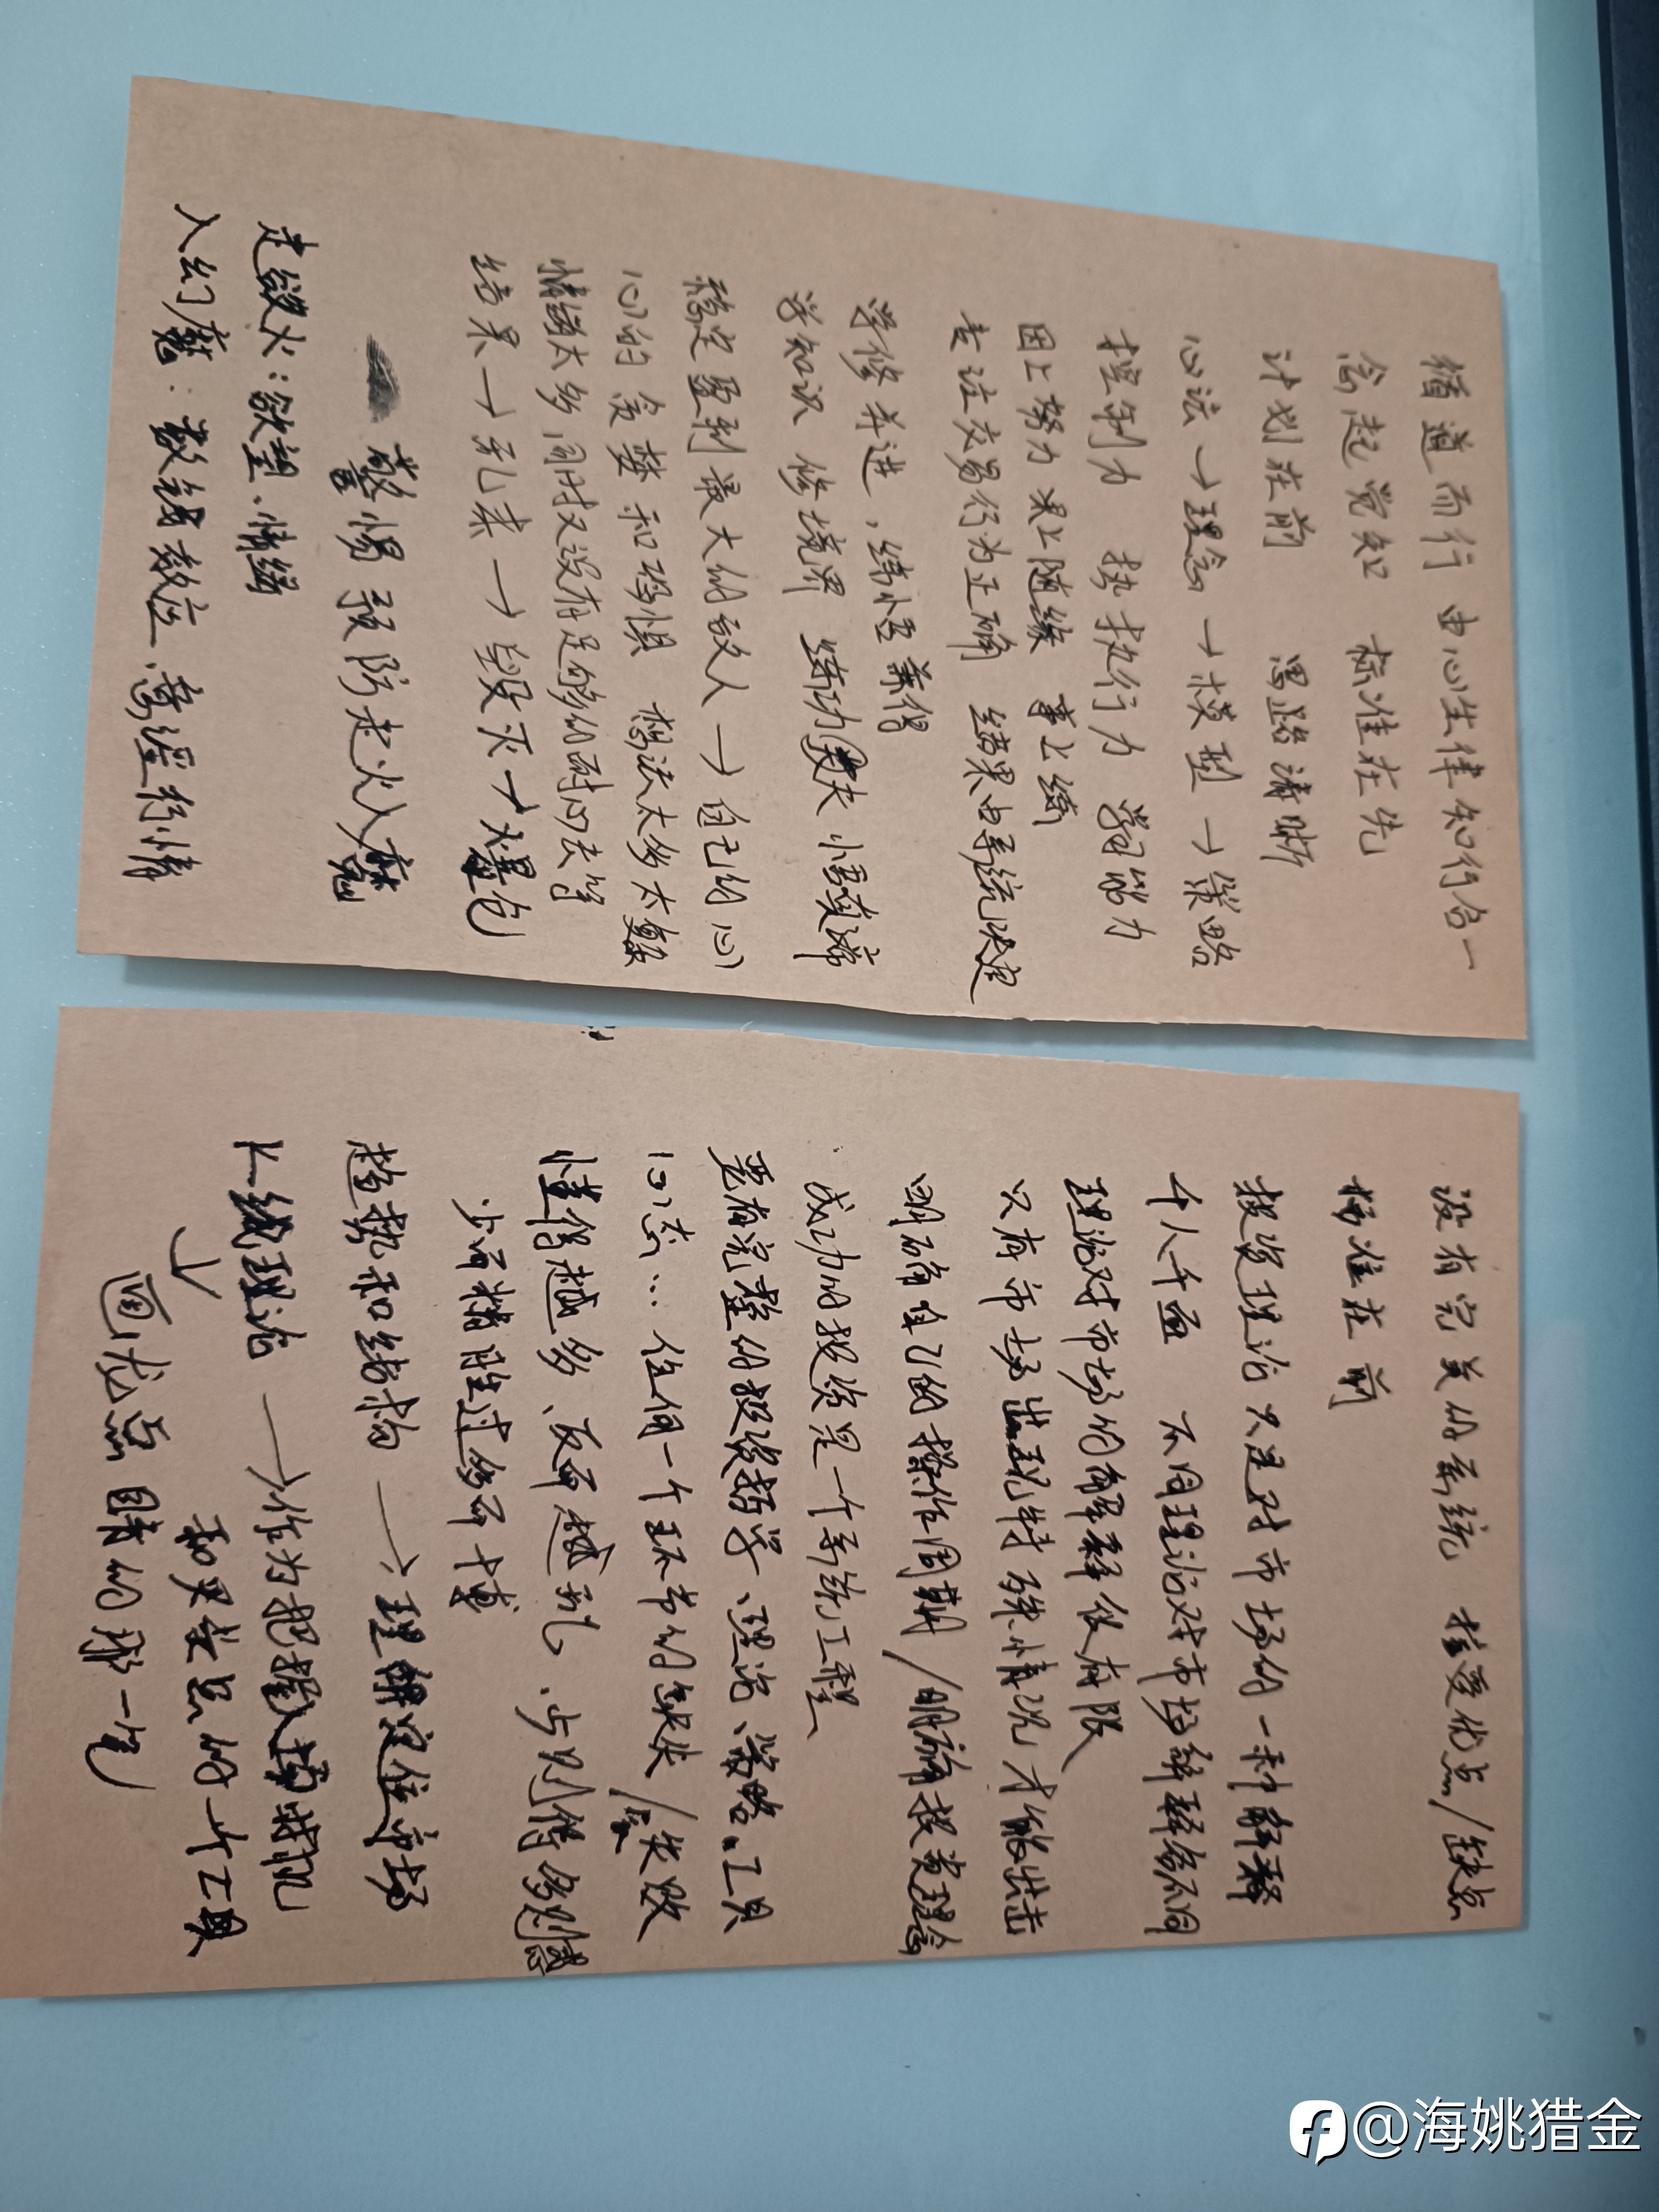 循道而行 由心生律 知行合一
念起觉知 标准在先
计划在前 思路清晰
心法→理念→模型→策略
控制力 执执行力 学习能力
因上努力 果上随缘 事上练
专注交易行为正确 结果由系统决定
学修并进，练悟兼偕
学知识 修境界 练功夫 悟真谛
稳定盈利最大的敌人→自己的心
心的贪婪和恐惧 想法太多太复杂
情绪太多 同时又没有足够的耐心去等
结果→乱来→毁灭→爆仓
警惕预防走火入魔
走欲火:欲望、情绪
入幻魔:数钱效应、意淫行情
没有完美的系统 接受优点/缺点
标准在前
投资理论只是对市场的一种解释
千人千面 不同理论对市场解释各不同
理论对市场的解释仅有限
只有市场出现特殊情况才能出击
明确自己的操作周期/明确投资理念
成功的投资是一个系统工程
要有完整的投资哲学、理论、策略、工具
心态…任何一个环节的缺失/会失败
懂得越多、反而越乱、少则得多则惑
少而精胜过多而博
趋势和结构→理解定位市场
K线理论→作为把握入场时机
和买卖点的一个工具
画龙点睛的那一笔
@海姚猎金